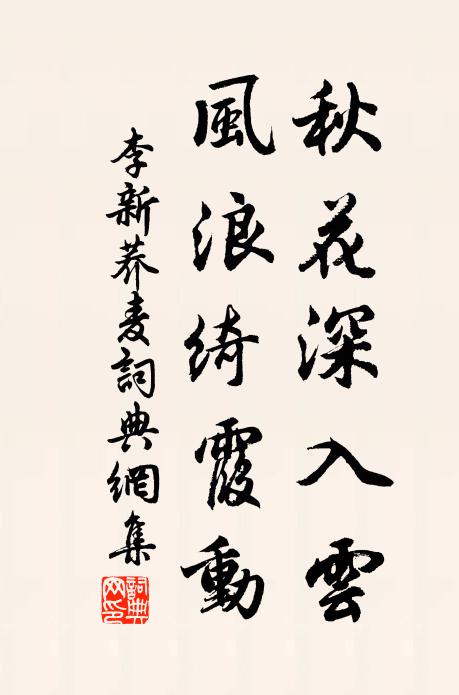 秋花深入雲
風浪綺霞動
李新蕎麦詞典網集
詞典网印